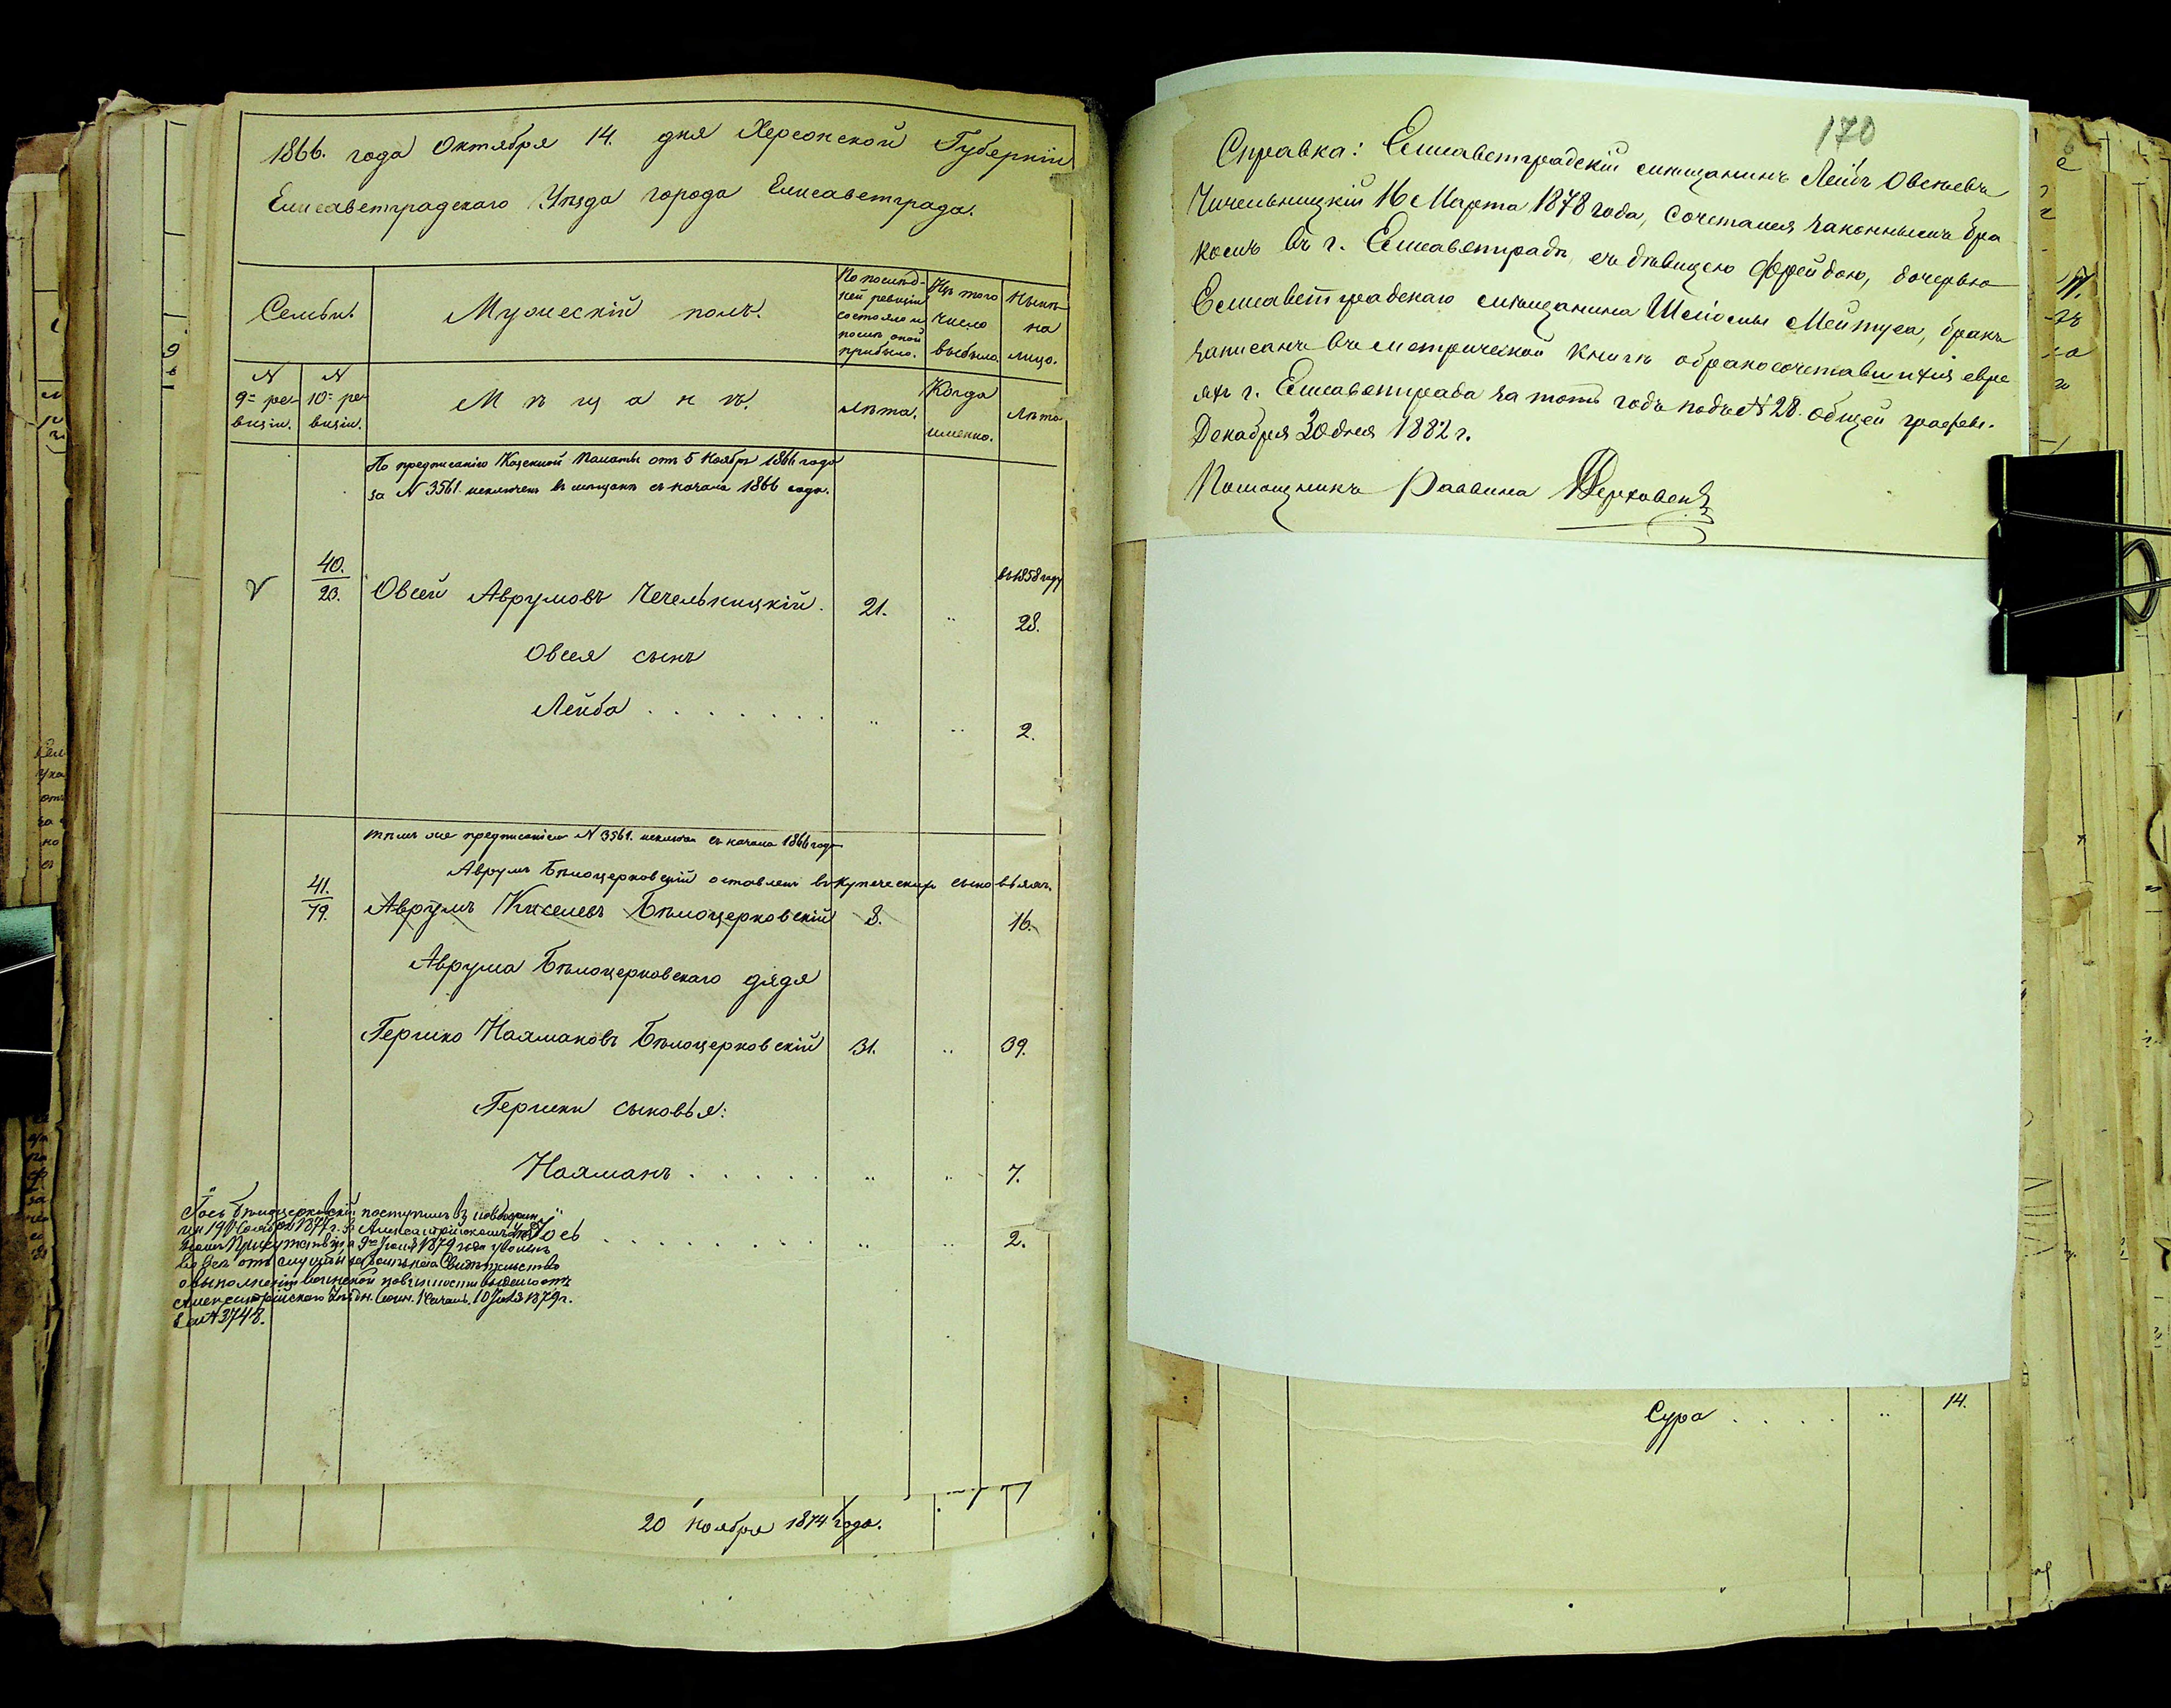 1866. года Октября 14. дня Херсонской Губерніи
Елисаветградскаго Уѣзда города Елисаветграда.
Семьи.
Мужескій полъ.
По послѣд-
ней ревизіи
состояло и
послѣ оной
прибыло.
Изъ того
число
выбыло.
Нынѣ
на
лицо.
№
9й ре-
визіи.
№
10й ре-
визіи.
Мѣщанъ.
Лѣта.
Когда
именно.
Лѣта
По предписанію Казенной Палаты отъ 5 Ноября 1866 года
за № 3561. исключенъ въ мѣщане съ начала 1866 года.
40.
23.
Овсей Аврумовъ Чечельницкій.
21.
въ 1858 году
28.
Овсея сынъ
Лейба
2.
тѣмъ же предписаніемъ № 3561. съ начала 1866 года
Аврумъ Бѣлоцерковскій оставленъ въ купеческихъ сыновьяхъ.
41.
79.
Аврумъ Киселевъ Бѣлоцерковскій
8.
16.
Аврума Бѣлоцерковскаго дядя
Гершко Нахмановъ Бѣлоцерковскій
31.
39.
Гершки сыновья:
Нахманъ
7.
Іось
2.
Іось Бѣлоцерковскій поступилъ въ
1877 г. въ
Присутствіи а 9го Іюля 1879 года уволенъ
вовсе отъ службы Свидѣтельство
о выполненіи воинской повинности выдано отъ
Александрійскаго Уѣздн. Воин. Началь. 10 Іюля 1879 г.
за № 3748.
20 Ноября 1874 года.
170
Справка: Елисаветградскій мѣщанинъ Лейбъ Овсѣевъ
Чичельницкій 16 Марта 1878 года, сочетался законнымъ бра
комъ въ г. Елисаветградѣ, съ дѣвицею Фрейдою, дочерью
Елисаветградскаго мѣщанина Шліомы Мейтуса, бракъ
записанъ въ метрической книгѣ о бракосочетавшихся евре
яхъ г. Елисаветграда за тотъ годъ подъ № 28. общей графы.
Декабря 30 дня 1882 г.
Помощникъ Раввина
Сура
14.